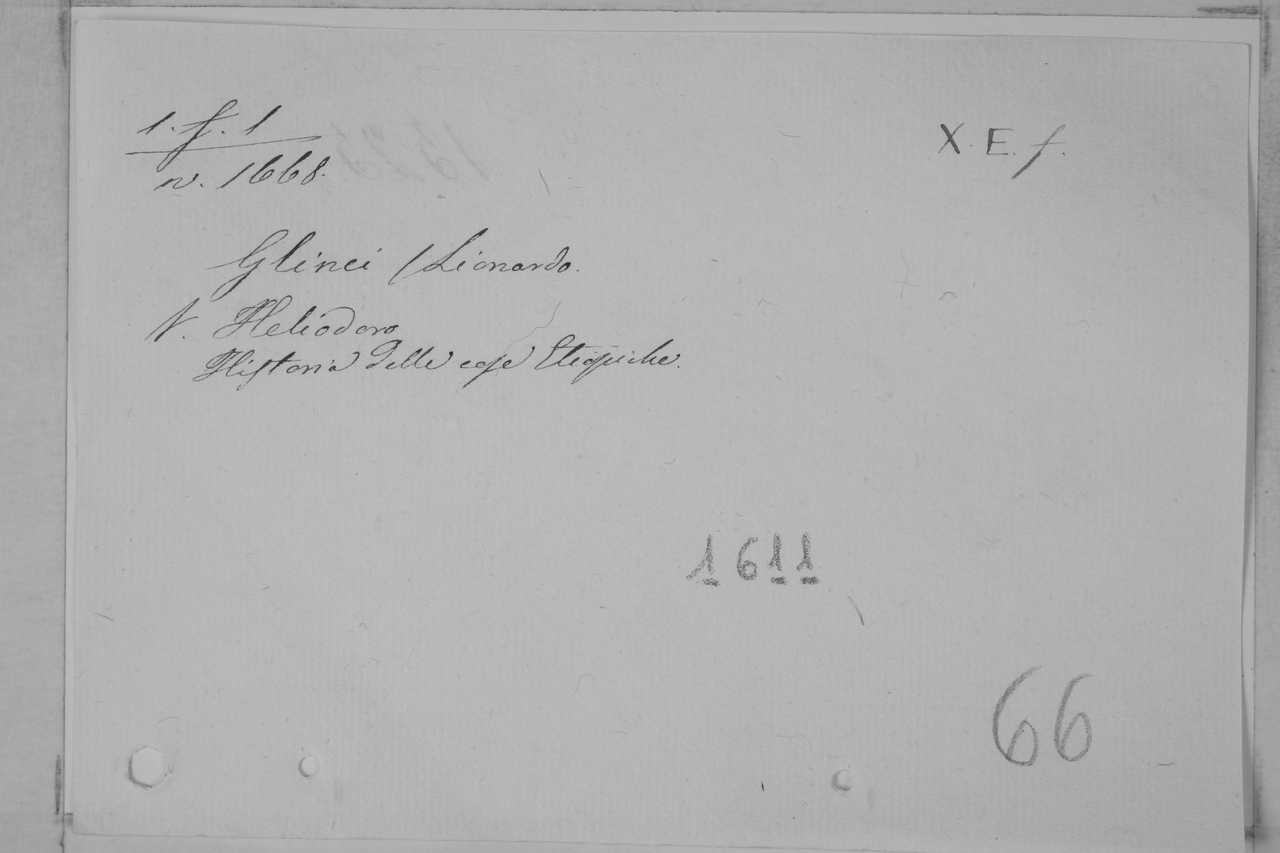 1. f. 1
X. E. f.
n. 1668.
Glinci /Lionardo.
V. Heliodoro
Historia delle cose Etiopiche.
1611
66